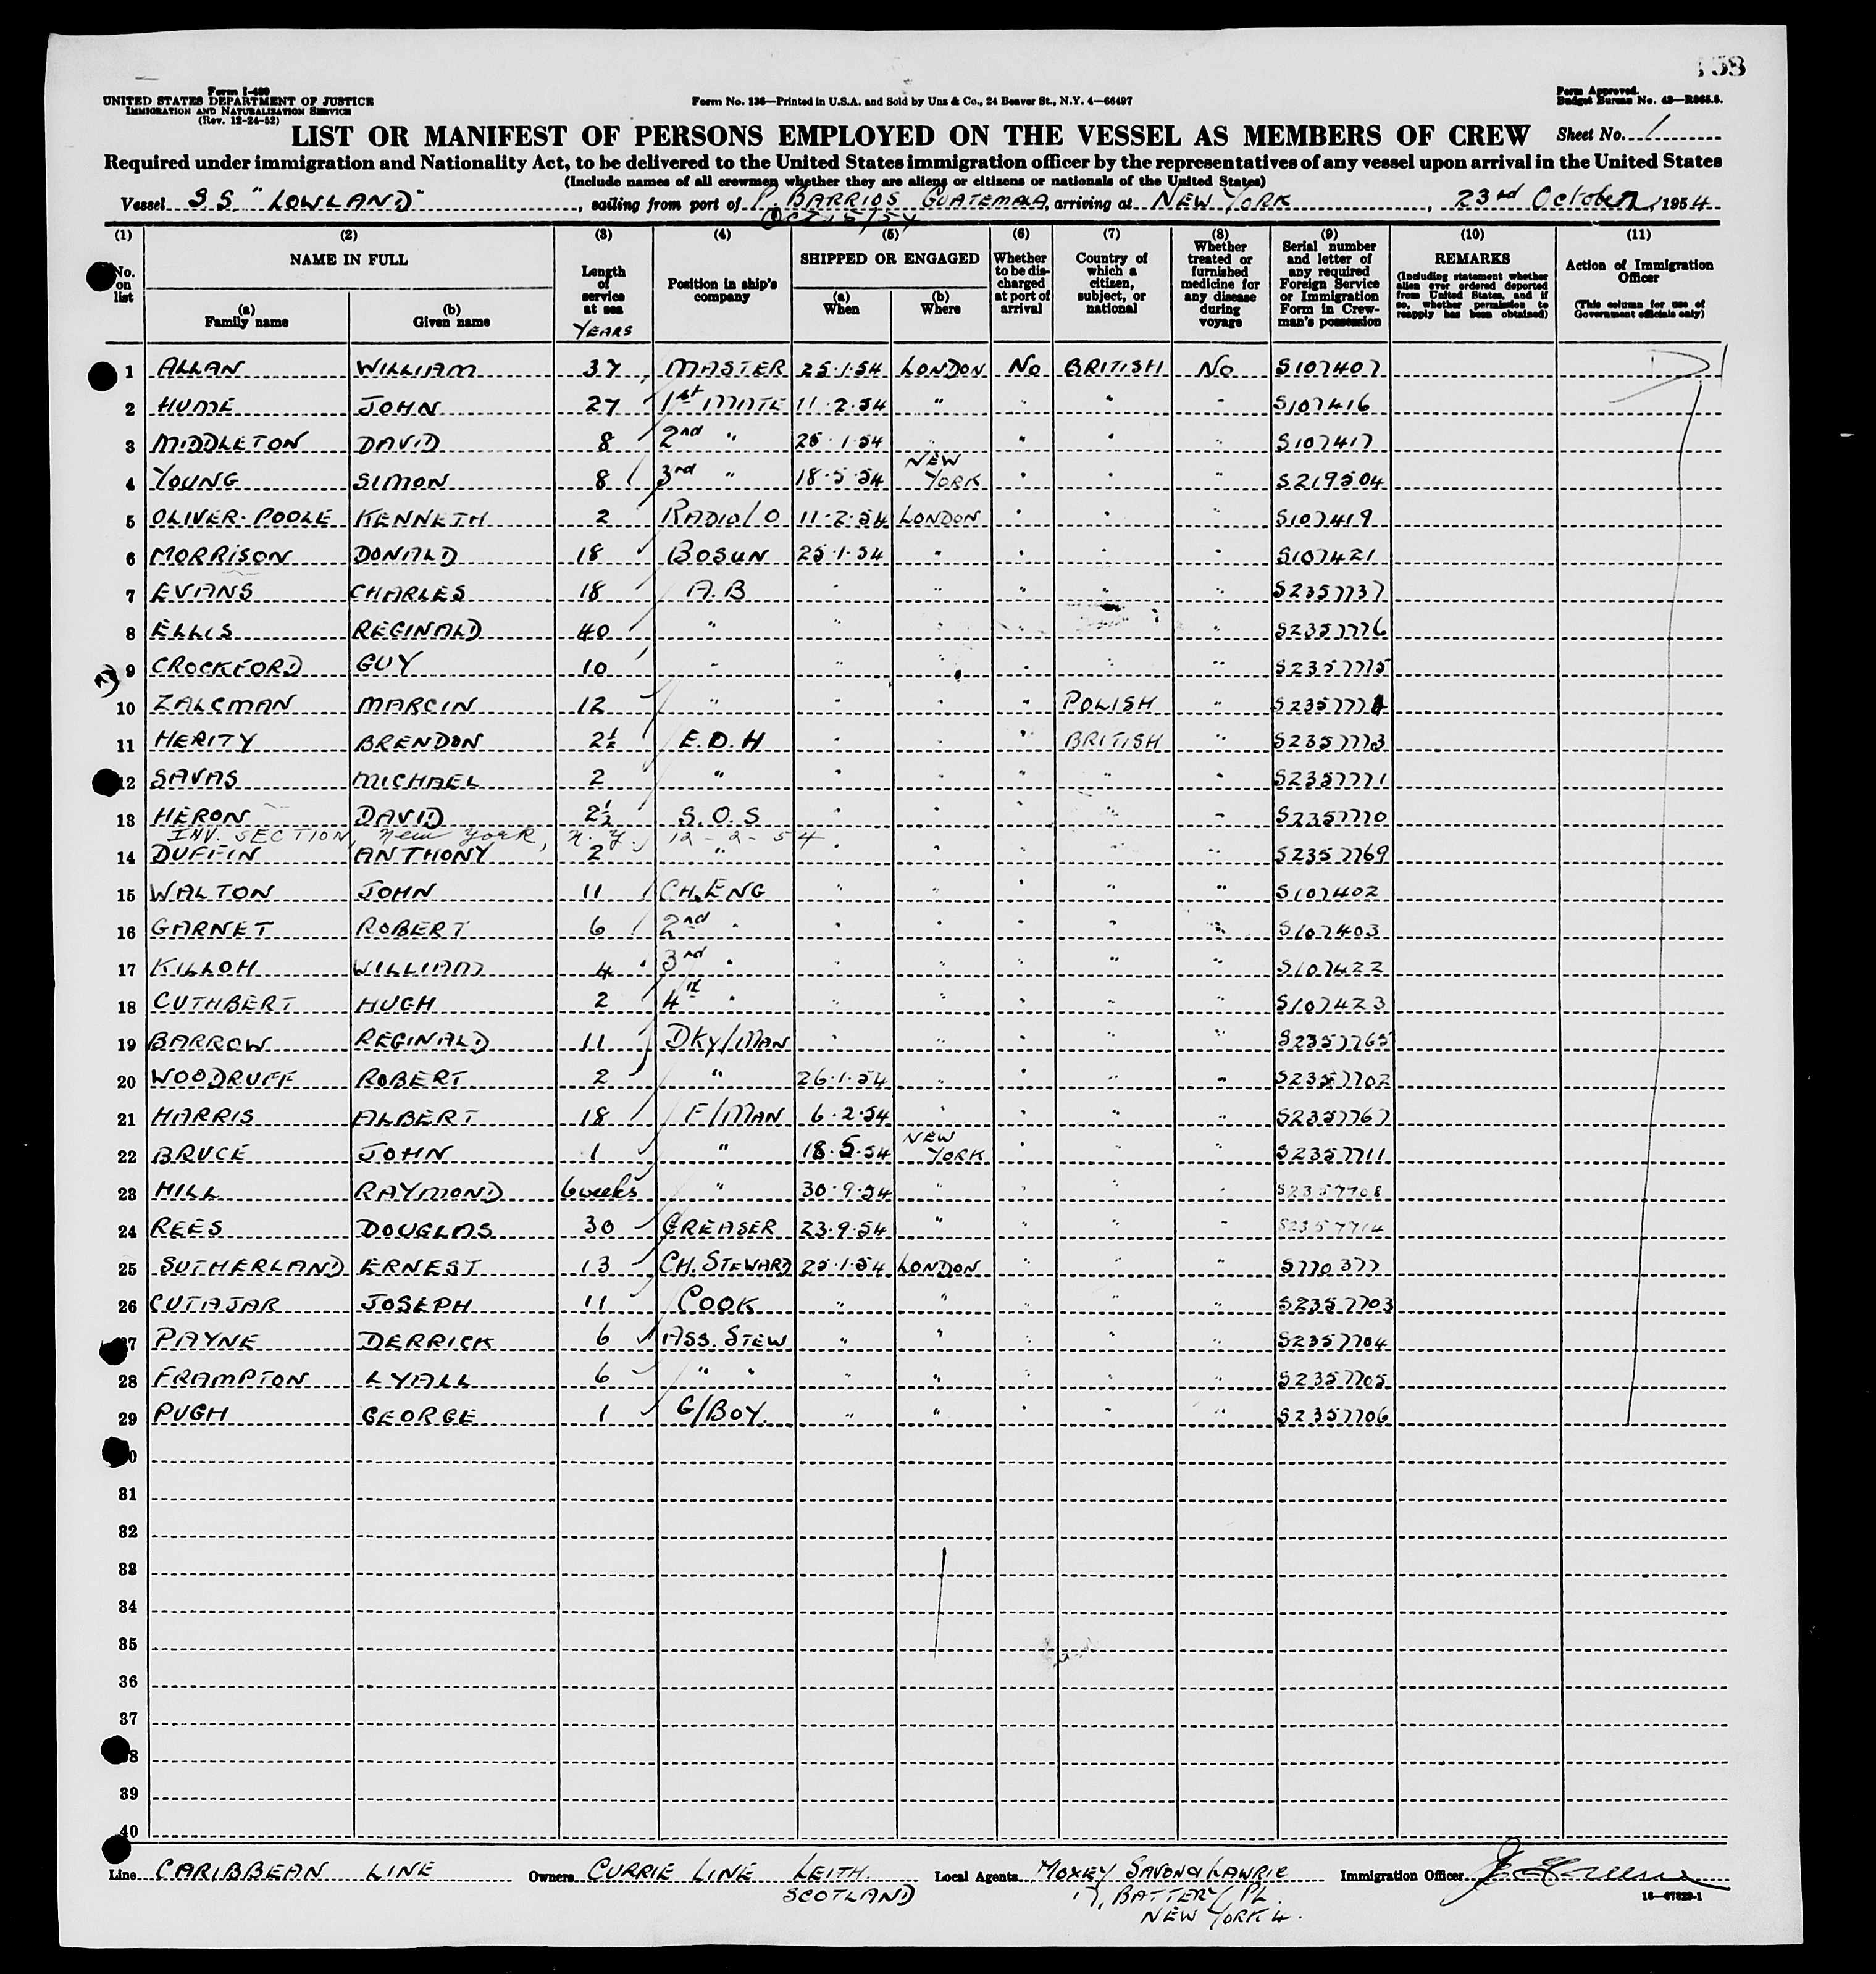 158
Form I-480
UNITED STATES DEPARTMENT OF JUSTICE
IMMIGRATION AND NATURALIZATION SERVICE
(Rev. 12-24-52)
Form No. 136—Printed in U.S.A. and Sold by Unz & Co., 24 Beaver St., N.Y. 4—66497
Form Approved.
Budget Bureau No. 43—R065.5.
LIST OR MANIFEST OF PERSONS EMPLOYED ON THE VESSEL AS MEMBERS OF CREW
Sheet No. 1
Required under immigration and Nationality Act, to be delivered to the United States immigration officer by the representatives of any vessel upon arrival in the United States
(Include names of all crewmen whether they are aliens or citizens or nationals of the United States)
Vessel S.S. "LOWLAND", sailing from port of P. BARRIOS GUATEMALA, arriving at NEW YORK, 23rd October, 1954
OCT 15/54
(1) (2) (3) (4) (5) (6) (7) (8) (9) (10) (11)
No. on list
NAME IN FULL
(a) Family name
(b) Given name
Length of service at sea
YEARS
Position in ship's company
SHIPPED OR ENGAGED
(a) When
(b) Where
Whether to be discharged at port of arrival
Country of which a citizen, subject, or national
Whether treated or furnished medicine for any disease during voyage
Serial number and letter of any required Foreign Service or Immigration Form in Crewman's possession
REMARKS
(Including statement whether alien ever ordered deported from United States, and if so, whether permission to reapply has been obtained)
Action of Immigration Officer
(This column for use of Government officials only)
1 ALLAN WILLIAM 37 MASTER 25.1.54 LONDON No BRITISH No S107407
2 HUME JOHN 27 1st MATE 11.2.54 " " " " S107416
3 MIDDLETON DAVID 8 2nd " 25.1.54 " " " " S107417
4 YOUNG SIMON 8 3rd " 18.5.54 NEW YORK " " " S219504
5 OLIVER-POOLE KENNETH 2 RADIO/O 11.2.54 LONDON " " " S107419
6 MORRISON DONALD 18 BOSUN 25.1.54 " " " " S107421
7 EVANS CHARLES 18 A.B " " " " " S2357737
8 ELLIS REGINALD 40 " " " " " " S2357776
9 CROCKFORD GUY 10 " " " " " " S2357775
10 ZALCMAN MARCIN 12 " " " " POLISH "
11 HERITY BRENDON 2½ E.D.H " " " BRITISH " S2357773
12 SAVAS MICHAEL 2 " " " " " " S2357771
13 HERON DAVID 2½ S.O.S " " " " " S2357770
INV. SECTION, New York, N.Y. 12-2-54
14 DUFFIN ANTHONY 2 " " " " " " S2357769
15 WALTON JOHN 11 CH.ENG " " " " " S107402
16 GARNET ROBERT 6 2nd " " " " " " S107403
17 KILLOH WILLIAM 4 3rd " " " " " " S107422
18 CUTHBERT HUGH 2 4th " " " " " " S107423
19 BARROW REGINALD 11 DKY/MAN " " " " " S2357765
20 WOODRUFF ROBERT 2 " 26.1.54 " " " " S2357702
21 HARRIS ALBERT 18 F/MAN 6.2.54 " " " " S2357767
22 BRUCE JOHN 1 " 18.5.54 NEW YORK " " " S2357711
23 HILL RAYMOND 6 weeks " 30.9.54 " " " " S2357708
24 REES DOUGLAS 30 GREASER 23.9.54 " " " " S2357714
25 SUTHERLAND ERNEST 13 CH. STEWARD 25.1.54 LONDON " " " S770377
26 CUTAJAR JOSEPH 11 COOK " " " " " S2357703
27 PAYNE DERRICK 6 ASS. STEW " " " " " S2357704
28 FRAMPTON LYALL 6 " " " " " " " S2357705
29 PUGH GEORGE 1 G/BOY. " " " " " S2357706
30
31
32
33
34
35
36
37
38
39
40
Line CARIBBEAN LINE Owners CURRIE LINE LEITH. Local Agents MOXEY SAVON & LAWRIE Immigration Officer
SCOTLAND 17, BATTERY PL.
NEW YORK 4.
16—67829-1